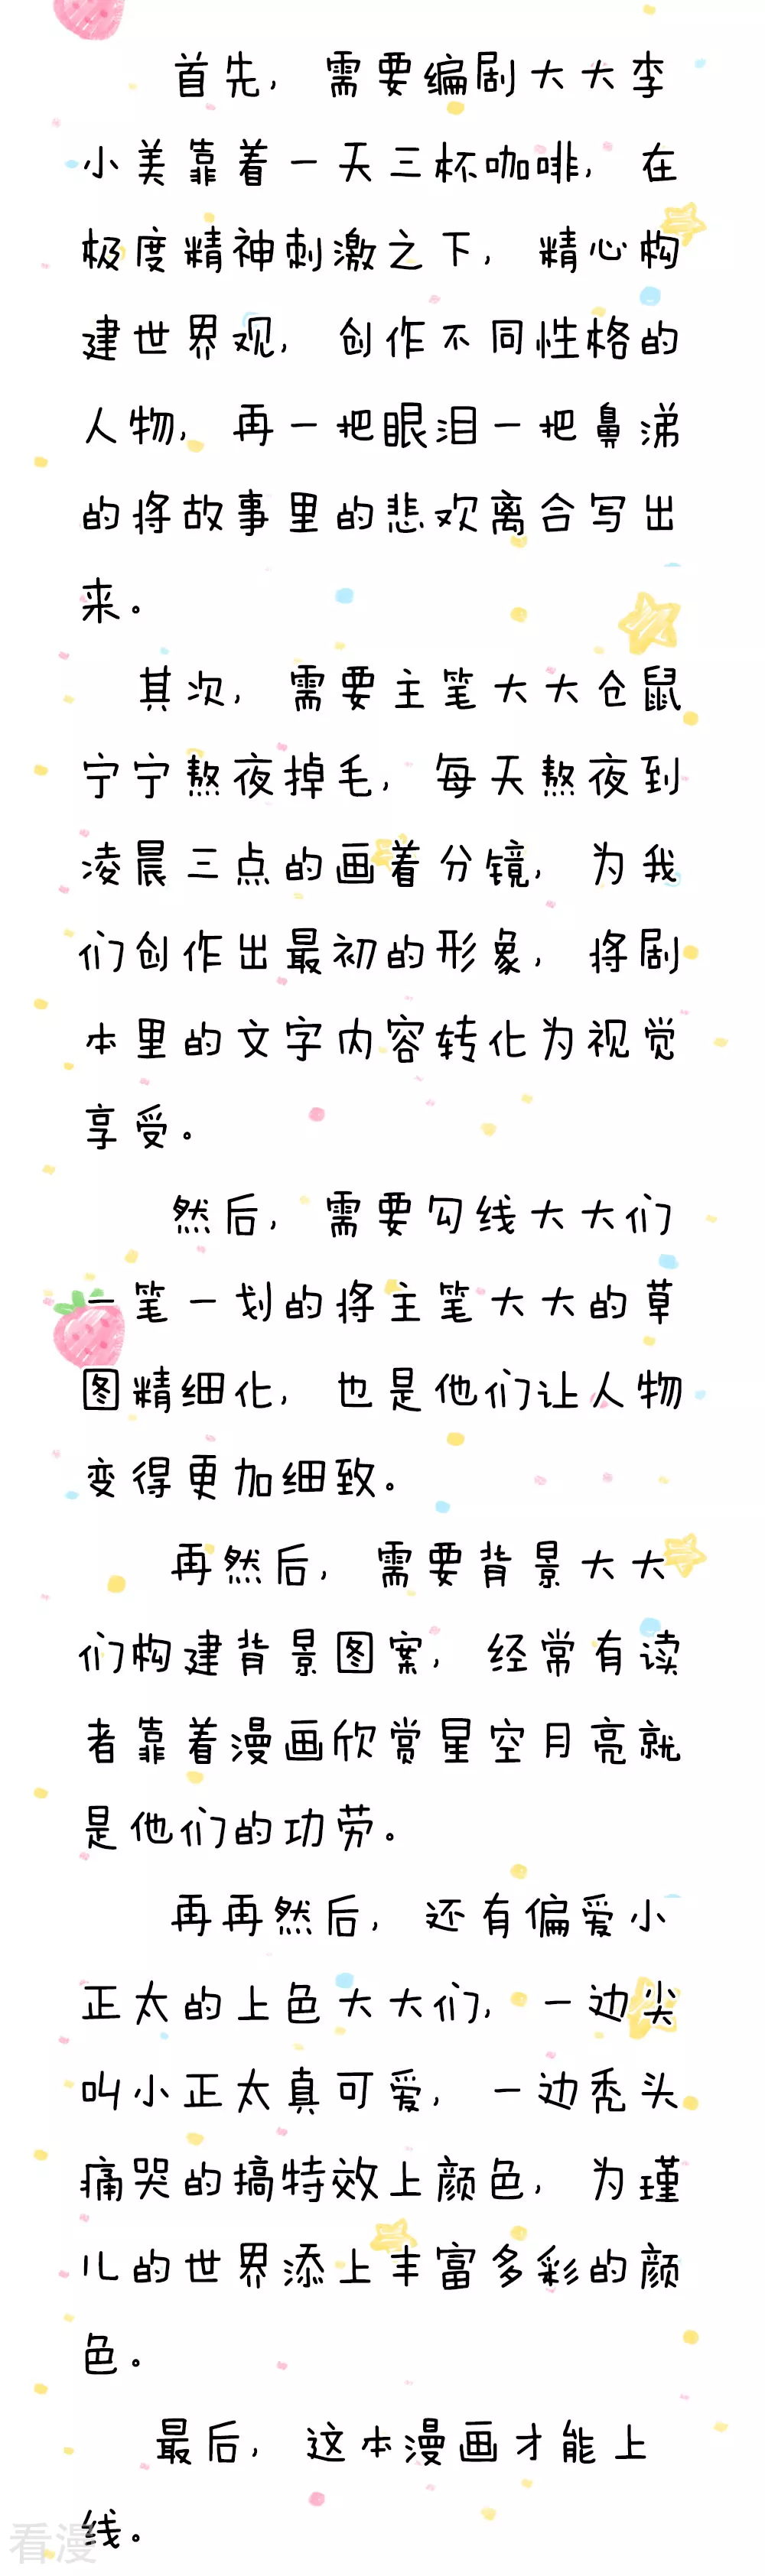 首先，需要编剧大大李
小美靠着一天三杯咖啡，在
极度精神刺激之下，精心构
建世界观，创作不同性格的
人物，再一把眼泪一把鼻涕
的将故事里的悲欢离合写出
来。
其次，需要主笔大大仓鼠
宁宁熬夜掉毛，每天熬夜到
凌晨三点的画着分镜，为我
们创作出最初的形象，将剧
本里的文字内容转化为视觉
享受。
然后，需要勾线大大们
一笔一划的将主笔大大的草
图精细化，也是他们让人物
变得更加细致。
再然后，需要背景大大
们构建背景图案，经常有读
者靠着漫画欣赏星空月亮就
是他们的功劳。
再再然后，还有偏爱小
正太的上色大大们，一边尖
叫小正太真可爱，一边秃头
痛哭的搞特效上颜色，为瑾
儿的世界添上丰富多彩的颜
色。
最后，这本漫画才能上
线。
看漫